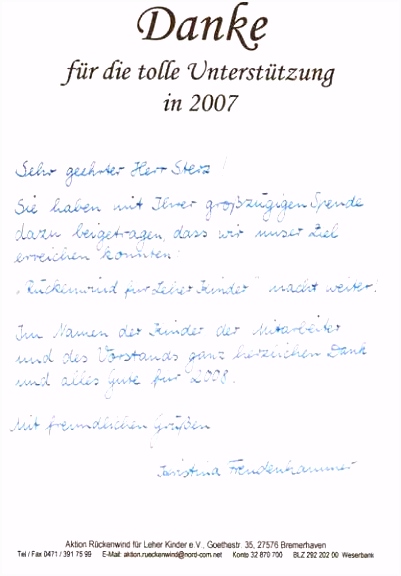 Danke
für die tolle Unterstützung
in 2007
Sehr geehrter Herr Sterz!
Sie haben mit Ihrer großzügigen Spende
dazu beigetragen, dass wir unser Ziel
erreichen konnten:
„Rückenwind für Leher Kinder" macht weiter!
Im Namen der Kinder der Mitarbeiter
und des Vorstands ganz herzlichen Dank
und alles Gute für 2008.
Mit freundlichen Grüßen
Christina Freudenhammer
Aktion Rückenwind für Leher Kinder e.V., Goethestr. 35, 27576 Bremerhaven
Tel / Fax 0471 / 391 75 99 E-Mail: aktion.rueckenwind@nord-com.net Konto 32 870 700 BLZ 292 202 00 Weserbank